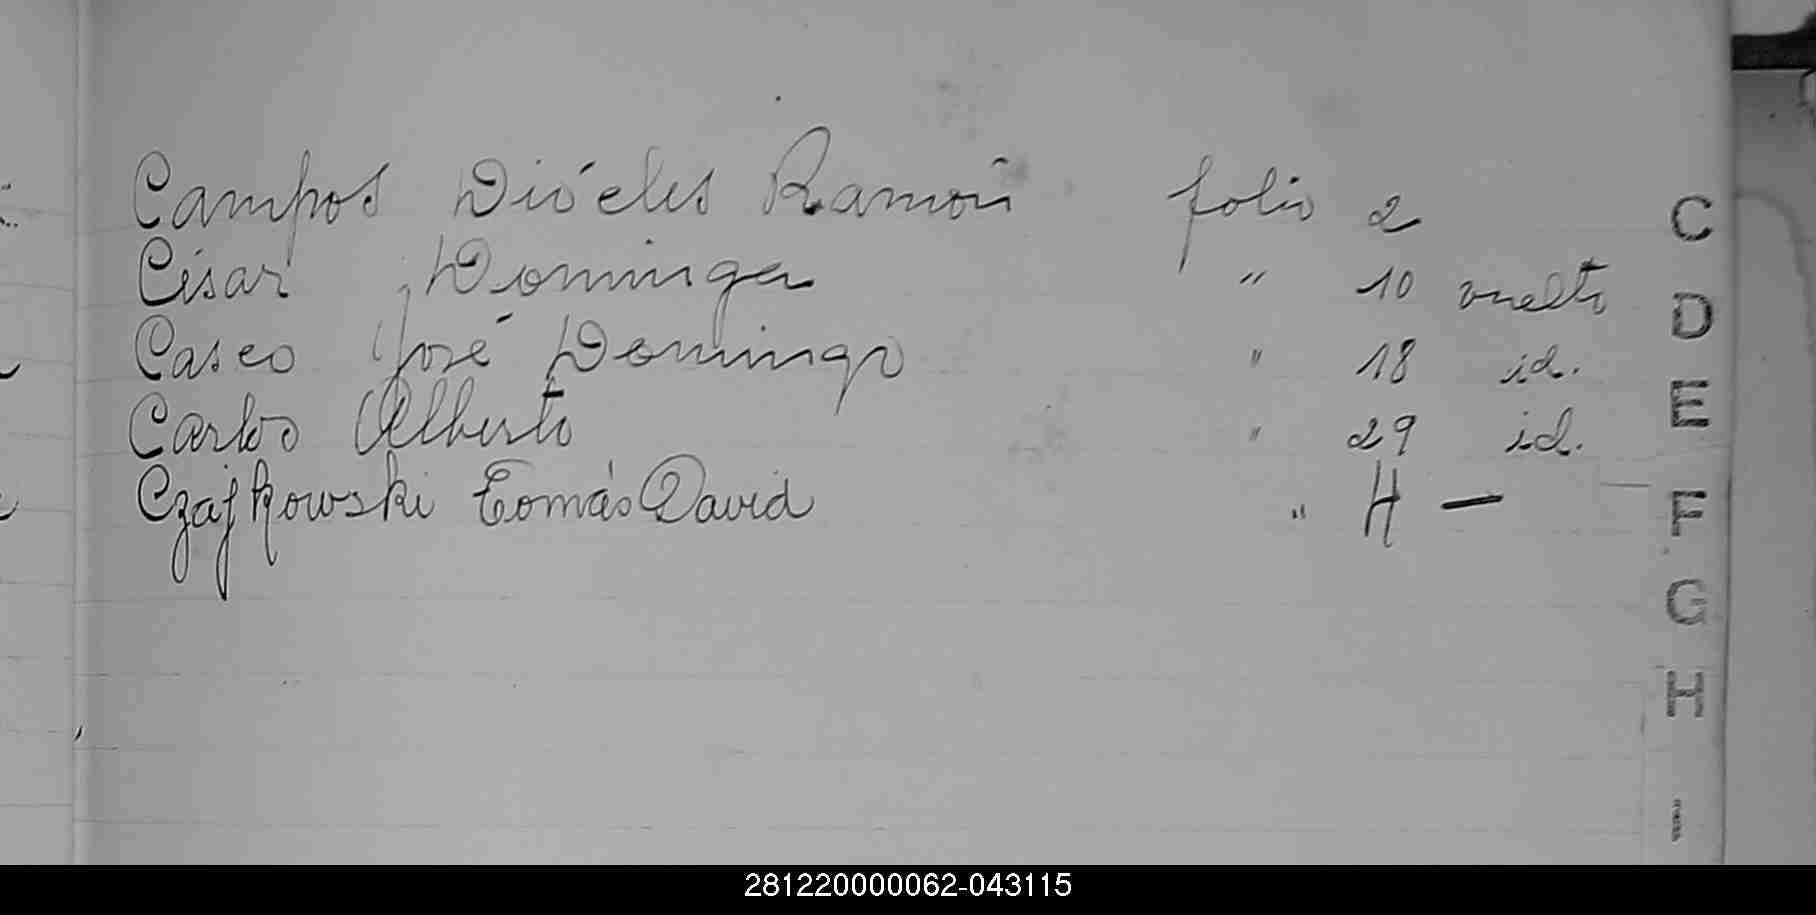 Campos Dióeles Ramón folio 2
César Dominga " 10 vuelto
Casco José Domingo " 18 id.
Carlos Alberto " 29 id.
Czajkowski Tomás David " H —
C
D
E
F
G
H
I
281220000062-043115